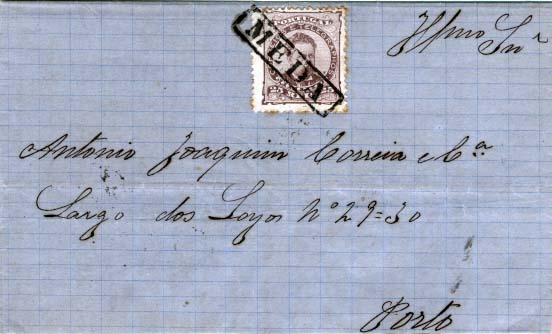 PORTUGAL
MEDA
25
Illmo Snr
Antonio Joaquim Correia e Cª
Largo dos Loyos Nº 29=30
Porto